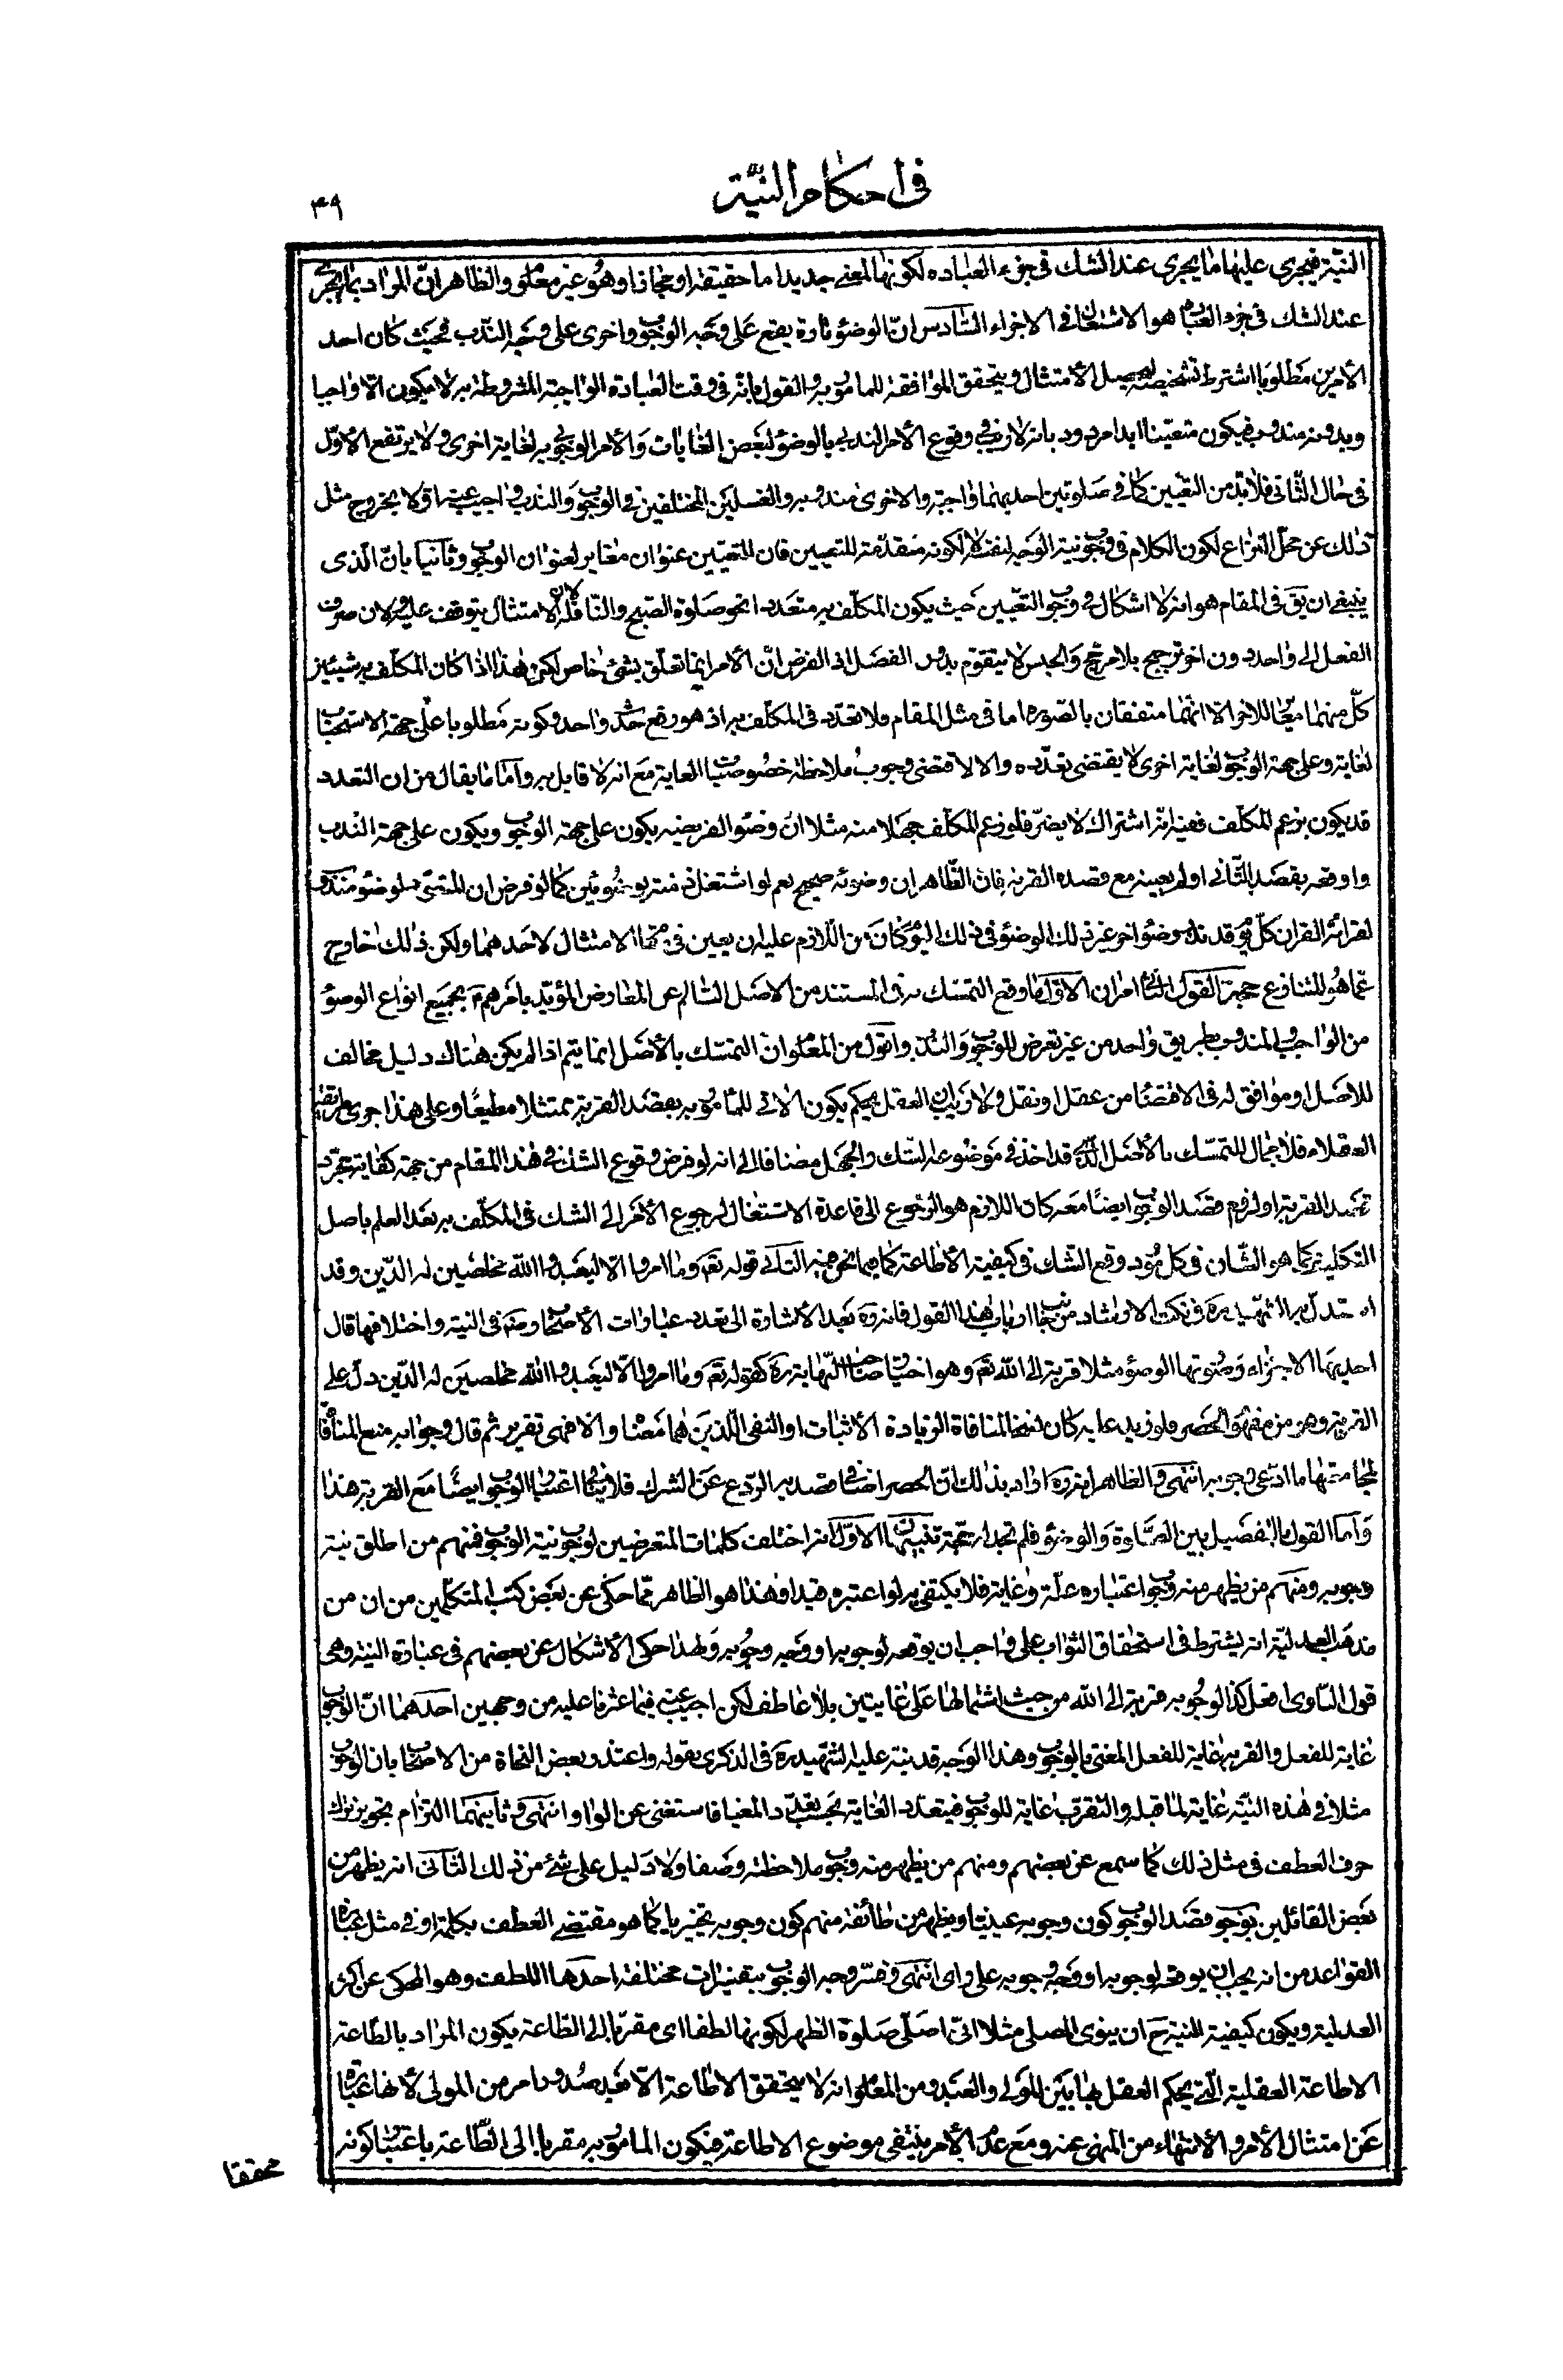 في احكام النية
٣٩
النية فيجري عليها ما يجري عند الشك في جزء العباده لكونها لمعنى جديد اما حقيقة او مجازا وهو غير معلوم والظاهر ان المراد بما يجري
عند الشك في جزء العبادة هو الاشتغال في الاجزاء السادس ان الوضوء تارة يقع على وجه الوجوب واخرى على وجه الندب فحيث كان احد
الأمرين مطلوبا اشترط تشخيصه ليحصل الأمتثال ويتحقق الموافقة للمامور به والقول بانه في وقت العبادة الواجبة المشروطة به لا يكون الا واجبا
وبدونه مندوب فيكون متعينا ابدا مردود بانه لا ريب في وقوع الأمر الندبي بالوضوء لبعض الغايات والأمر الوجوبي به لغاية اخرى ولا يرتفع الأول
في حال الثاني فلا بد من التعيين كما في صلوتين احديهما واجبة والاخرى مندوبة والغسلين المختلفين في الوجوب والندب واجيب عنه اولا بخروج مثل
ذلك عن محل النزاع لكون الكلام في وجوب نية الوجه لنفسه لا لكونه مقدمة للتعيين فان التعيين عنوان مغاير لعنوان الوجوب وثانيا بان الذى
ينبغي ان يق في المقام هو انه لا اشكال في وجوب التعيين حيث يكون المكلف به متعددا نحو صلوة الصبح والنافلة لان الامتثال يتوقف عليه ولان صرف
الفعل الى واحد دون اخر ترجيح بلا مرجح والجنس لا يتقوم بدون الفصل اذ الفرض ان الأمر انما تعلق بشئ خاص لكن هذا اذا كان المكلف به شيئين
كل منهما مغاير للاخر الا انهما متفقان بالصورة اما في مثل المقام فلا تعدد في المكلف به اذ هو رفع حدث واحد وكونه مطلوبا على جهة الاستحباب
لغاية وعلى جهة الوجوب لغاية اخرى لا يقتضى تعدده والا لاقتضى وجوب ملاحظة خصوصيات الغاية مع انه لا قايل به واما ما يقال من ان التعدد
قد يكون بزعم المكلف ففيه ان اشتراك لا يضر فلو زعم المكلف جهلا منه مثلا ان وضوء الفريضه يكون على جهة الوجوب ويكون على جهة الندب
واوقعه بقصد الثاني او لم يعينه مع قصده القربة فان الظاهر ان وضوئه صحيح نعم لو اشتغل ذمته بوضوئين كما لو فرض ان المقتضى لوضوء مندوب
لقرائة القران كل يوم قد نذر وضوء اخر غير ذلك الوضوء في ذلك اليوم كان من اللازم عليه ان يعين في مقام الامتثال لاحدهما ولكن ذلك خارج
عما هو المتنازع حجة القول الثاني امران الاول ما وقع التمسك به في المستند من الاصل السالم عن المعارض المؤيد بامرهم بجميع انواع الوضوء
من الواجب والمندوب بطريق واحد من غير تعرض للوجوب والندب واقول من المعلوم ان التمسك بالأصل انما يتم اذا لم يكن هناك دليل مخالف
للاصل او موافق له في الاقتضاء من عقل او نقل ولا ريب ان العقل يحكم بكون الاتي للمأمور به بقصد القربة ممتثلا مطيعا وعلى هذا جرى طريقة
العقلاء فلا مجال للتمسك بالأصل الذي قد اخذ في موضوعه الشك والجهل مضافا الى انه لو فرض وقوع الشك في هذا المقام من جهة كفاية مجرد
قصد القربة او لزوم قصد الوجوب ايضا معه كان اللازم هو الرجوع الى قاعدة الاشتغال لرجوع الأمر الى الشك في المكلف به بعد العلم باصل
التكليف كما هو الشان في كل مورد وقع الشك في كيفية الأطاعة كما فيما نحن فيه الثاني قوله تعم وما امروا الا ليعبدوا الله مخلصين له الدين وقد
استدل به الشهيد ره في نكت الارشاد من جانب ارباب هذا القول فانه ره بعد الاشارة الى تعدد عبارات الأصحاب رض في النية واختلافها قال
احديها الاجتزاء وصورتها الوضوء مثلا قربة الى الله تعم وهو اختيار صاحب النهاية ره كقوله تعم وما امروا الا ليعبدوا الله مخلصين له الدين دل على
القربة وهو من مفهوم الحصر فلو زيد عليه كان لنفي المنافاة الزيادة الأثبات او النفي اللذين هما معنا والا فهى تقرير ثم قال وجوابه منع المنافاة
لمجامعتها ما ادعى وجوبه انتهى والظاهر انه ره اراد بذلك ان الحصر اضافي قصد به الردع عن الشرك فلا ينافي اعتبار الوجوب ايضا مع القربة هذا
واما القول بالتفصيل بين الصلوة والوضوء فلم نجد له حجة تنبيهان الاول انه اختلف كلمات المتعرضين لوجوب نية الوجوب فمنهم من اطلق نية
وجوبه ومنهم من يظهر منه وجوب اعتباره علة وغاية فلا يكتفى به لو اعتبره قيدا وهذا هو الظاهر مما حكى عن بعض كتب المتكلمين من ان من
مذهب العدلية انه يشترط في استحقاق الثواب على واجب ان يوقعه لوجوبه او وجه وجوبه ولهذا حكى الأشكال عن بعضهم في عبارة النية وهى
قول الناوى افعل كذا لوجوبه قربة الى الله من حيث اشتمالها على غايتين بلا عاطف لكن اجيب عنه فيما عثرنا عليه من وجهين احدهما ان الوجوب
غاية للفعل والقربة غاية للفعل المغيى بالوجوب وهذا الوجه قد نبه عليه الشهيد ره في الذكرى بقوله واعتذر بعض النحاة من الاصحاب بان الوجوب
مثلا في هذه النية غاية لما قبله والتقرب غاية للوجوب فيتعدد الغاية بحسب تعدد المغيا فاستغنى عن الواو انتهى وثانيهما التزام تجويز ترك
حرف العطف في مثل ذلك كما سمع عن بعضهم ومنهم من يظهر منه وجوب ملاحظته وصفا ولا دليل على شئ من ذلك الثاني انه يظهر من
بعض القائلين بوجوب قصد الوجوب كون وجوبه عينيا ويظهر من طائفة منهم كون وجوبه تخييريا كما هو مقتضى العطف بكلمة او في مثل عبارة
القواعد من انه يجب ان يوقعه لوجوبه او وجه وجوبه على راى انتهى وفسر وجه الوجوب بتفسيرات مختلفة احدها اللطف وهو المحكى عن اكثر
العدلية ويكون كيفية النية ح ان ينوى المصلى مثلا انى اصلى صلوة الظهر لكونها لطفا اى مقربا الى الطاعة يكون المراد بالطاعة
الاطاعة العقلية التى يحكم العقل بها بين المولى والعبد ومن المعلوم انه لا يتحقق الاطاعة الا بعد صدور امر من المولى لأنها عبارة
عن امتثال الأمر والأنتهاء من المنهى عنه ومع عدم الأمر ينتفى موضوع الاطاعة فيكون المامور به مقربا الى الطاعة باعتبار كونه
محققا